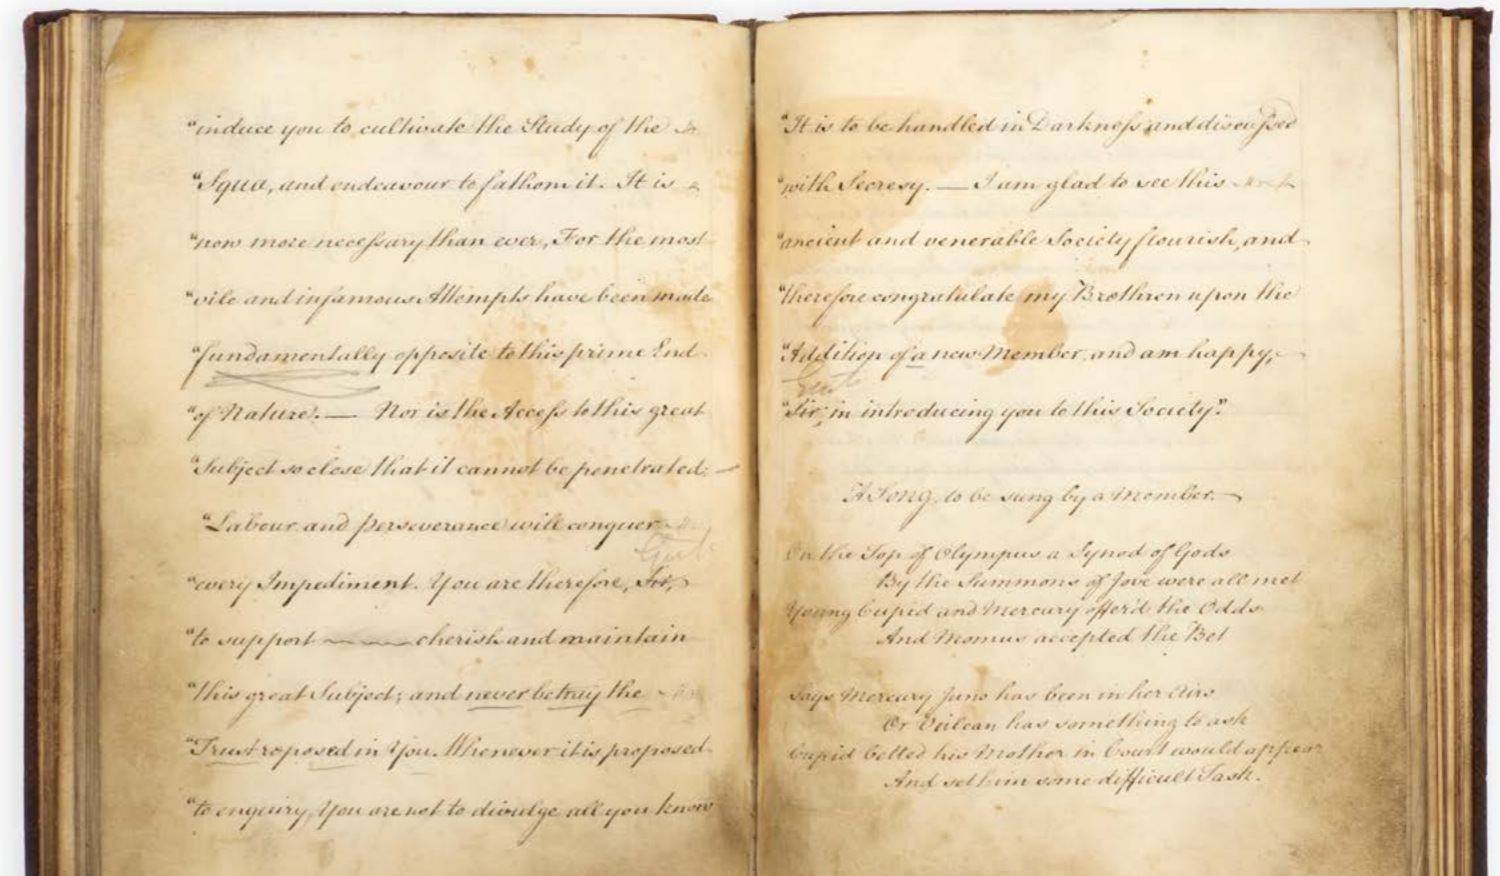 "induce you to cultivate the Study of the
"Squa, and endeavour to fathom it. It is
"now more necessary than ever, For the most
"vile and infamous Attempts have been made
"fundamentally opposite to this prime End
"of Nature. — Nor is the Access to this great
"Subject so close that it cannot be penetrated: —
"Labour and Perseverance will conquer
Gent
"every Impediment. You are therefore, Sir,
"to support ~~~ cherish and maintain
"this great Subject; and never betray the
"Trust reposed in You. Whenever it is proposed
"to enquiry, You are not to divulge all you know
"It is to be handled in Darkness and discussed
"with Secresy. — I am glad to see this
"ancient and venerable Society flourish, and
"therefore congratulate my Brethren upon the
"Addition of a new Member, and am happy,
Gent
"Sir, in introducing you to this Society."
A Song, to be sung by a Member.
On the Top of Olympus a Synod of Gods
By the Summons of Jove were all met
Young Cupid and Mercury offer'd the Odds
And Momus accepted the Bet
Says Mercury Juno has been in her Airs
Or Vulcan has something to ask
Cupid betted his Mother in Court would appear
And set him some difficult Task.